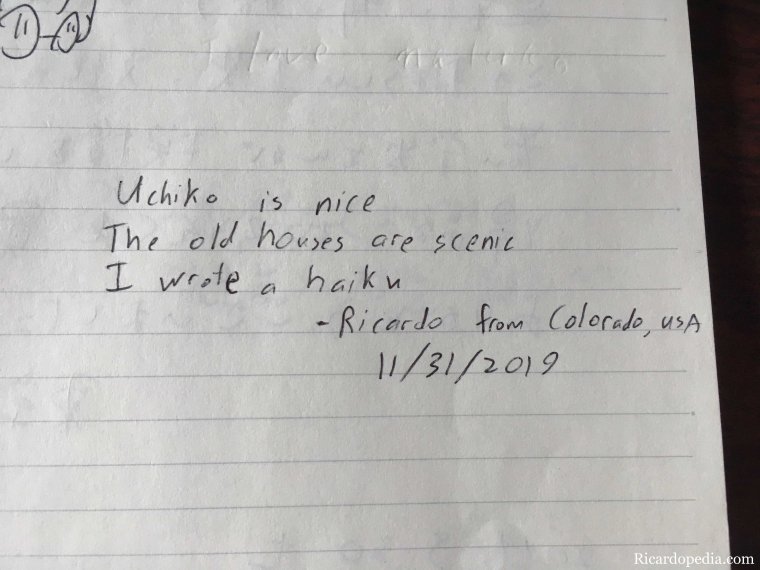 Uchiko is nice
The old houses are scenic
I wrote a haiku
-Ricardo from Colorado, USA
11/31/2019
Ricardopedia.com